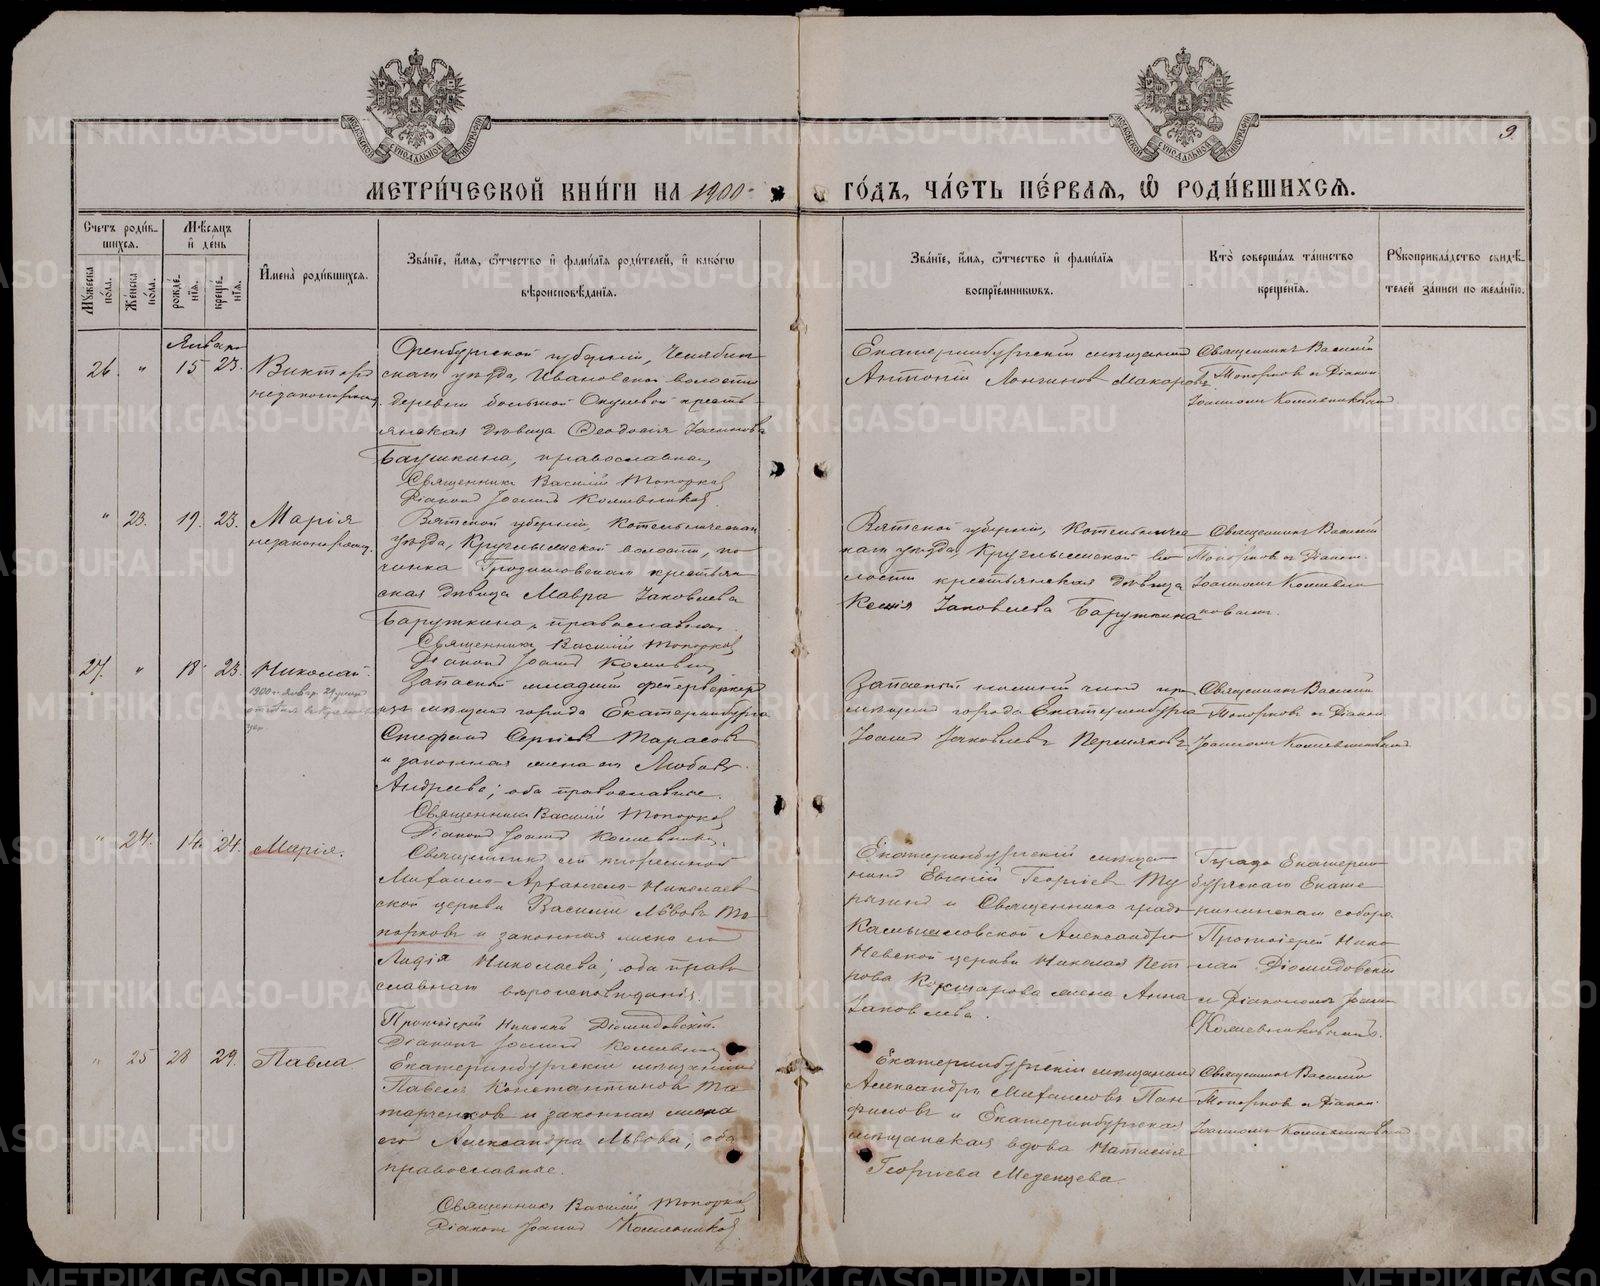 9
МЕТРИ́ЧЕСКОЙ КНИ́ГИ НА 1900
ГО́ДЪ, ЧА́СТЬ ПЕ́РВАЯ, Ѿ РОДИ́ВШИХСЯ.
Счетъ роди́в-
шихся.
Мѣсяцъ
и де́нь
Мꙋжеска пола.
Же́нска пола.
рожде́-
нїя.
креще́-
нїя.
Имена̀ роди́вшихся.
Зва́нїе, и́мя, ѻ́тчество и фами́лїя роди́телей, и како́гѡ
вѣроисповѣ́данїя.
Зва́нїе, и́мя, ѻ́тчество и фами́лїя
воспрїе́мникѡвъ.
Кто̀ соверша́лъ та́инство
креще́нїя.
Рꙋкоприкла́дство свидѣ́-
телей за́писи по жела́нїю.
Январь
26. " 15 23. Викторъ
незаконнорожд.
Оренбургской губерніи, Челябин
скаго уѣзда, Ивановской волости
деревни большой Окуневой кресть
янская дѣвица Ѳеодосія
православная
Священникъ Василій Топорковъ
Діаконъ Іоаннъ Кожевниковъ
Екатеринбургскій мѣщанинъ
Антоній Лонгиновъ Макаровъ
Священникъ Василій
Топорковъ и Діакон
Іоанномъ Кожевниковымъ
" 23. 19. 23. Марія
незаконнорожд.
Вятской губерніи, Котельническаго
уѣзда, волости, по
чинка крестьян
ская дѣвица Мавра Іаковлева
Барушкина, православная.
Священникъ Василій Топорковъ
Діаконъ Іоаннъ
Вятской губерніи, Котельническа
го уѣзда, во
лости крестьянская дѣвица
Ксенія Іаковлева Барушкина
Священникъ Василій
Топорковъ и Діакон
Іоанномъ Кожевни
ковымъ.
27. " 18 23. Николай
Запасный младшій фейерверкеръ
изъ мѣщанъ города Екатеринбурга
Стефанъ Сергіевъ Тарасовъ
и законная жена его Любовь
Андреева; оба православные.
Священникъ Василій Топорковъ
Діаконъ Іоаннъ Кожевниковъ
Запасный нижній чинъ изъ
мѣщанъ города Екатеринбурга
Іоаннъ Іаковлевъ Пермяковъ
Священникъ Василій
Топорковъ и Діакон
Іоанномъ Кожевниковымъ
" 24. 14. 24. Марія.
Священникъ сей
Михаило-Архангело-Николаев
ской церкви Василій Львовъ То
порковъ и законная жена его
Лидія Николаева; оба право
славнаго вѣроисповѣданія.
Протоіерей Николай Діомидовскій.
Діаконъ Іоаннъ
Екатеринбургскій мѣща
нинъ Евгеній Георгіевъ Ту
и Священника града
Камышловской Александро
Невской церкви Николая Пет
рова жена Анна
Іаковлева.
Града Екатерин
бургскаго Екате
рининскаго собора
Протоіерей Нико
лай Діомидовскій
и Діакономъ Іоан
Кожевниковымъ.
" 25 28 29. Павла
Екатеринбургскій мѣщанинъ
Павелъ Константиновъ Та
тарченковъ и законная жена
его Александра Львова; оба
православные.
Священникъ Василій Топорковъ
Діаконъ Іоаннъ Кожевниковъ
Екатеринбургскій мѣщанинъ
Александръ Михаиловъ Пан
филовъ и Екатеринбургская
мѣщанская вдова Наталія
Георгіева Меденцева.
Священникъ Василій
Топорковъ и Діакон
Іоанномъ Кожевниковымъ
METRIKI.GASO-URAL.RU